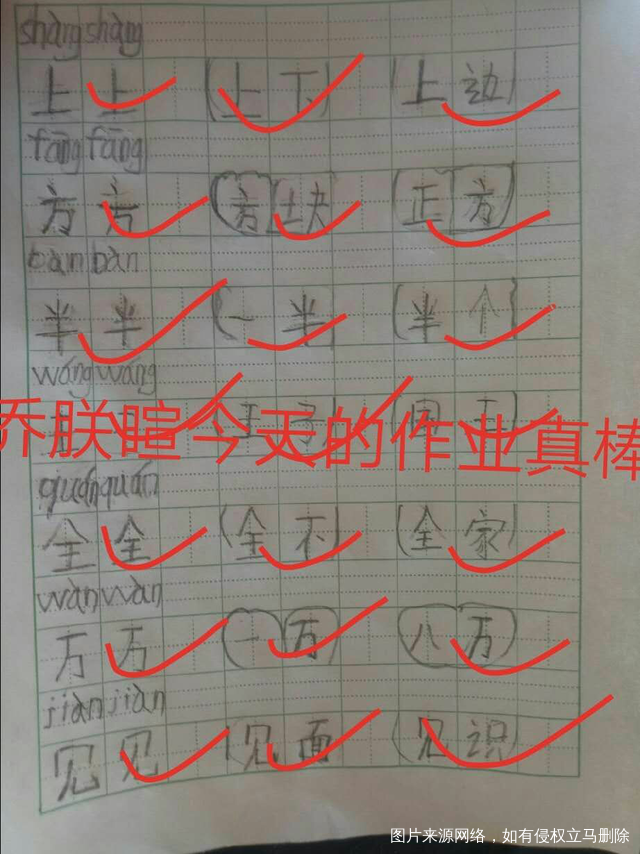 shàng shàng
上 上 (上 下) (上 边)
fāng fāng
方 方 (方 块) (正 方)
bàn bàn
半 半 (一 半) (半 个)
wáng wáng
王 子 国 王
乔朕暄今天的作业真棒
quán quán
全 全 (全 不) (全 家)
wàn wàn
万 万 (一 万) (八 万)
jiàn jiàn
见 见 (见 面) (见 识)
图片来源网络，如有侵权立马删除